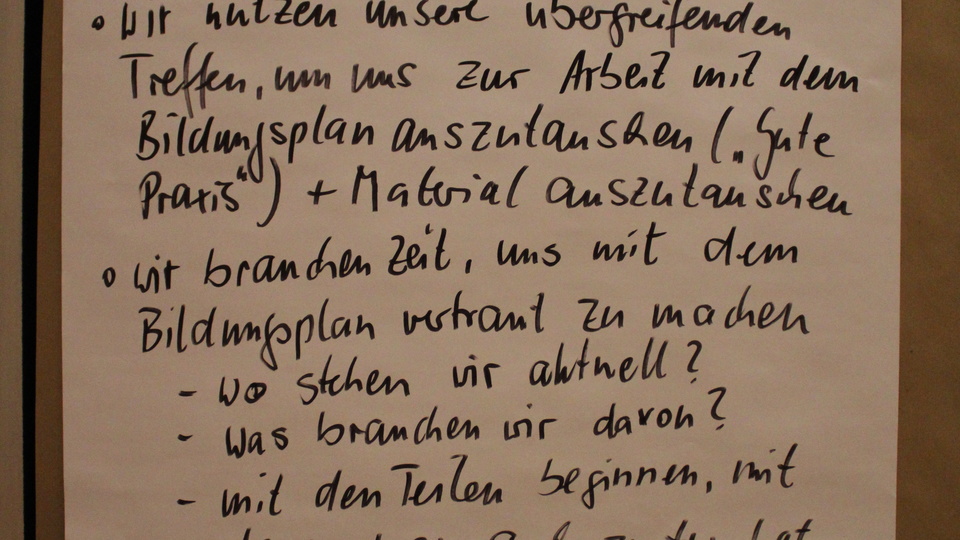 • wir nutzen unsere übergreifenden
Treffen, um uns zur Arbeit mit dem
Bildungsplan auszutauschen („Gute
Praxis“) + Material auszutauschen
• wir brauchen Zeit, uns mit dem
Bildungsplan vertraut zu machen
- wo stehen wir aktuell?
- was brauchen wir davon?
- mit den Teilen beginnen, mit